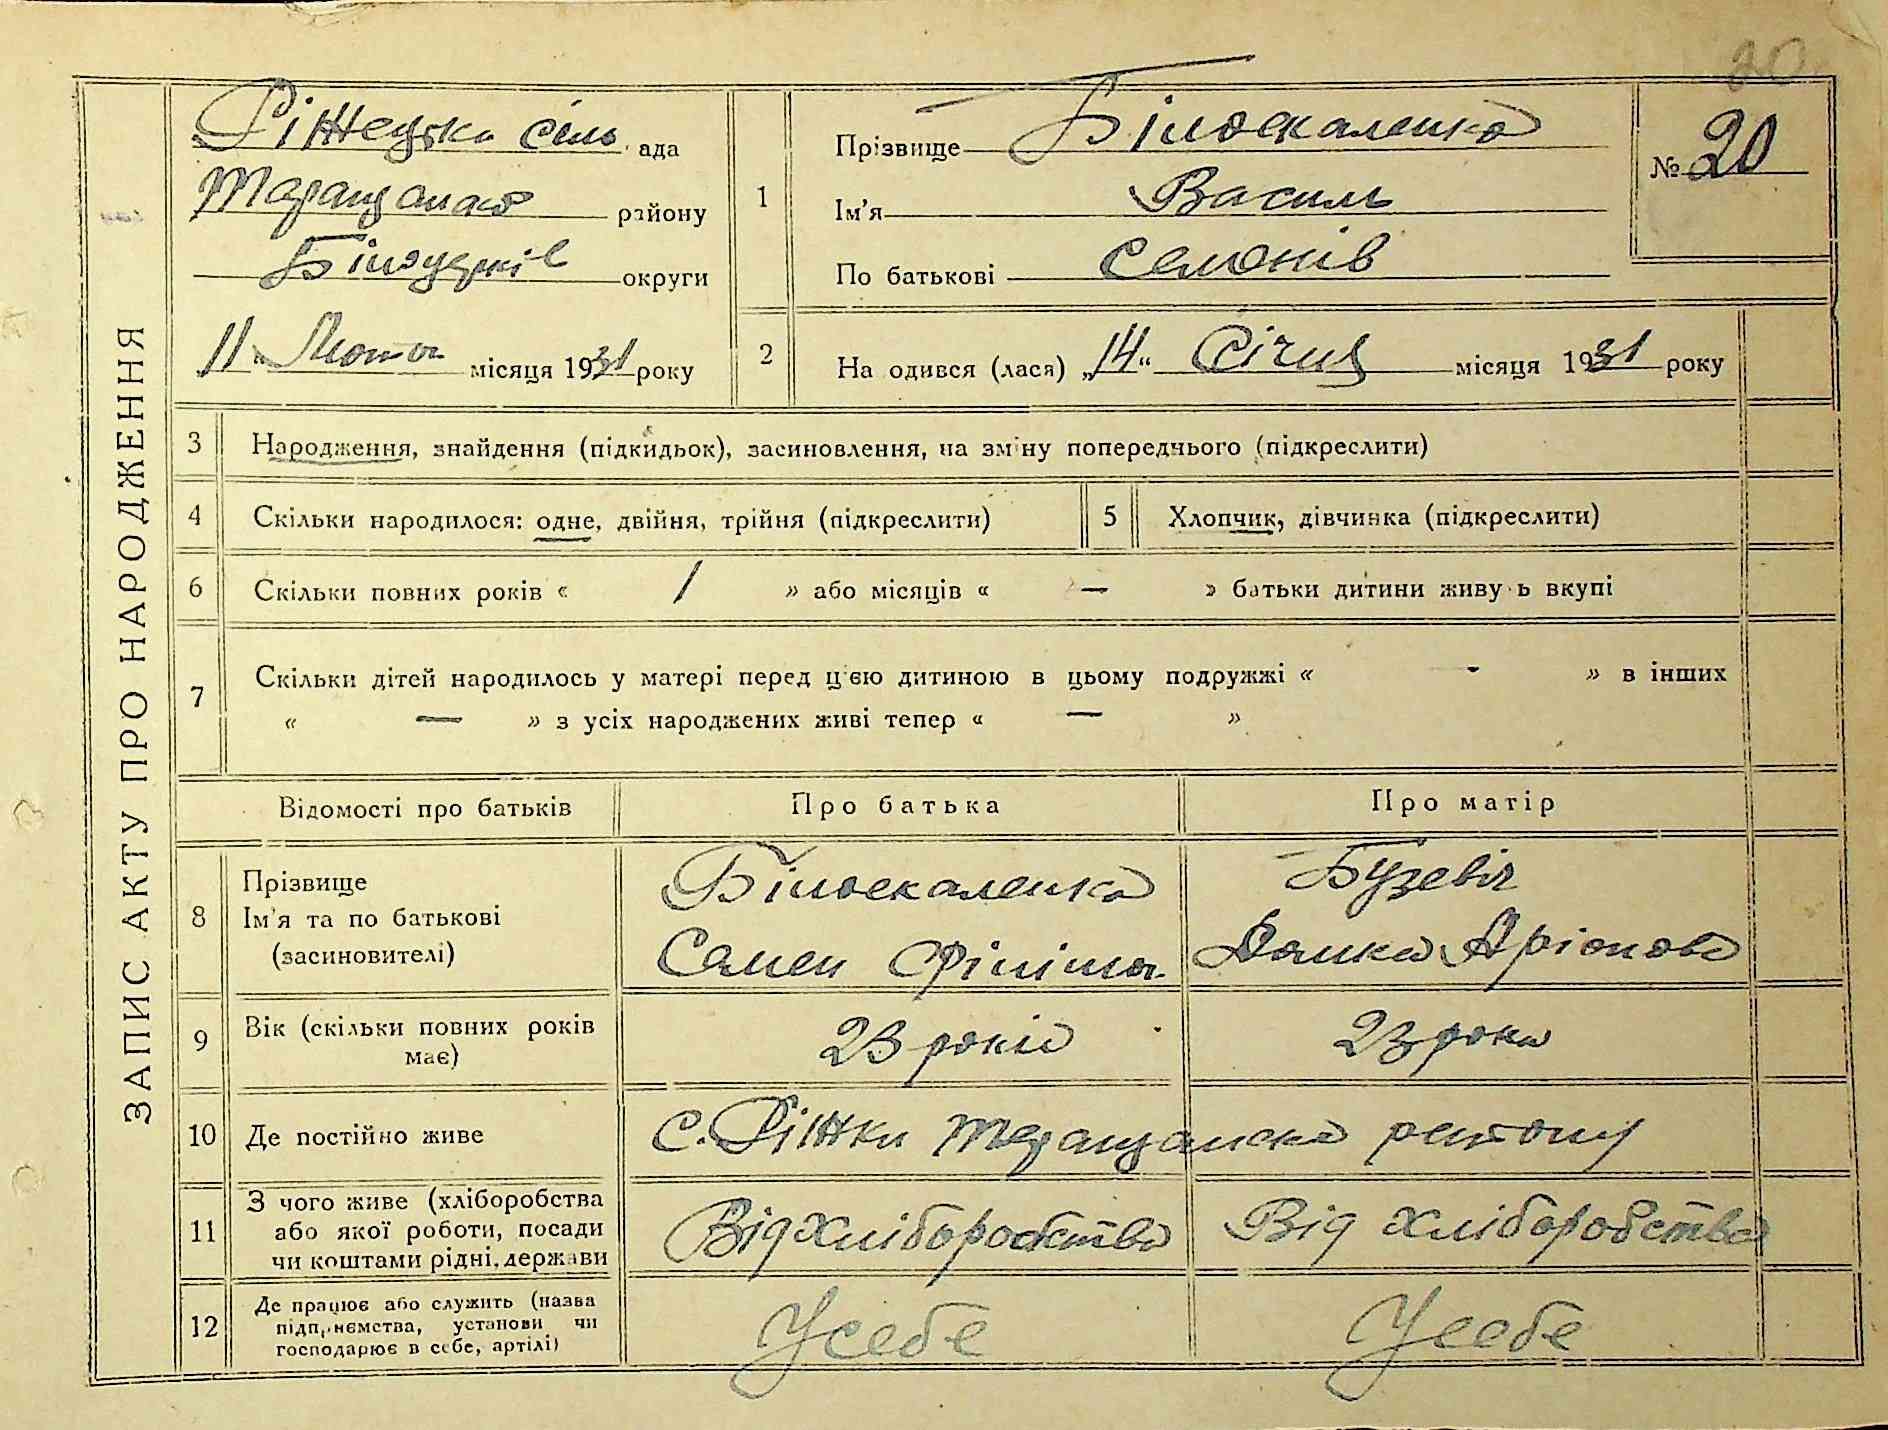 20
ЗАПИС АКТУ ПРО НАРОДЖЕННЯ
Ріжецька сіль ада
Таращанського району
Білоцерків округи
11 „ Люто місяця 1931 року
1
Прізвище Білоскаленко
Ім'я Василь
По батькові Семенів
№ 20
2
На одився (лася) „14“ Січня місяця 1931 року
3 Народження, знайдення (підкидьок), засиновлення, на зміну попереднього (підкреслити)
4 Скільки народилося: одне, двійня, трійня (підкреслити)
5 Хлопчик, дівчинка (підкреслити)
6 Скільки повних років « 1 » або місяців « — » батьки дитини живу ь вкупі
7 Скільки дітей народилось у матері перед цією дитиною в цьому подружжі « - » в інших
« — » з усіх народжених живі тепер « — »
Відомості про батьків Про батька Про матір
8 Прізвище
Ім'я та по батькові
(засиновителі)
Білоскаленко
Семен Філімо.
Бузевіч
Домка
9 Вік (скільки повних років
має)
23 років
23 роки
10 Де постійно живе
с. Ріжки Таращанського району
11 З чого живе (хліборобства
або якої роботи, посади
чи коштами рідні, держави
Від хліборобства
Від хліборобства
12 Де працює або служить (назва
підприємства, установи чи
господарює в себе, артілі)
У себе
У себе